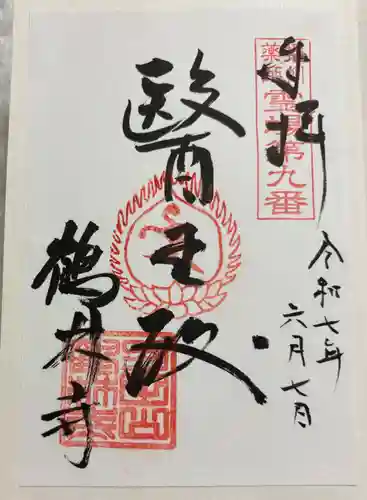 奉拝
薬師霊場第九番
醫王殿
令和七年
六月七日
鶴林寺